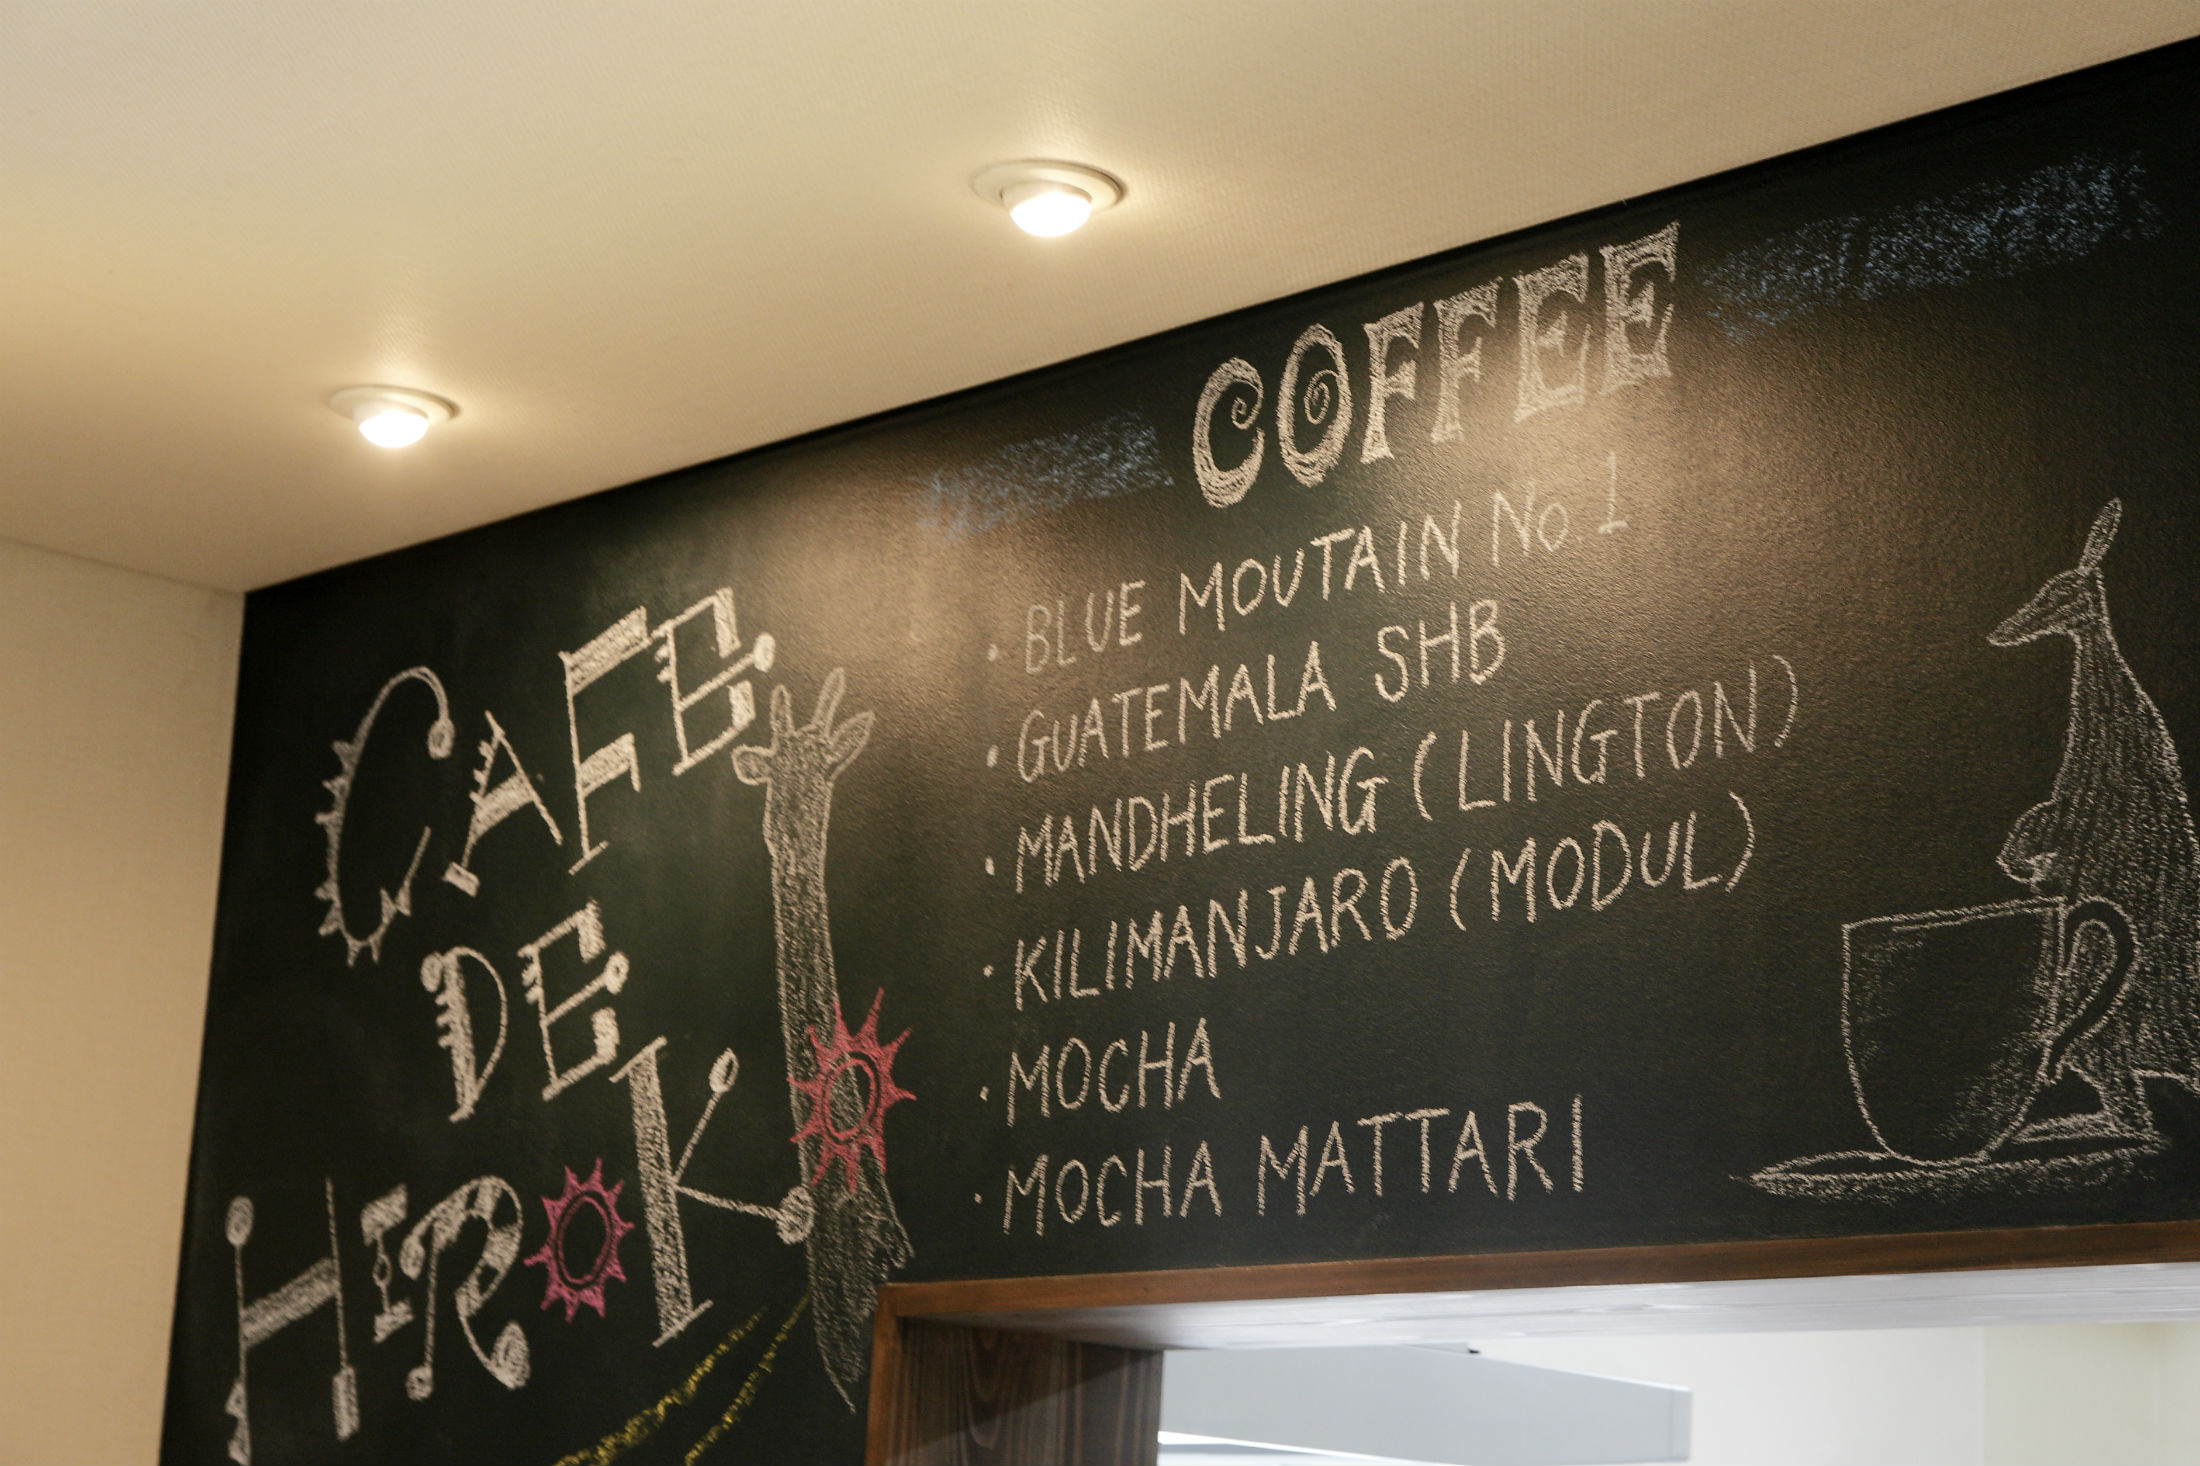 CAFE
DE
HIROKO
COFFEE
· BLUE MOUTAIN No.1
· GUATEMALA SHB
· MANDHELING (LINGTON)
· KILIMANJARO (MODUL)
· MOCHA
· MOCHA MATTARI